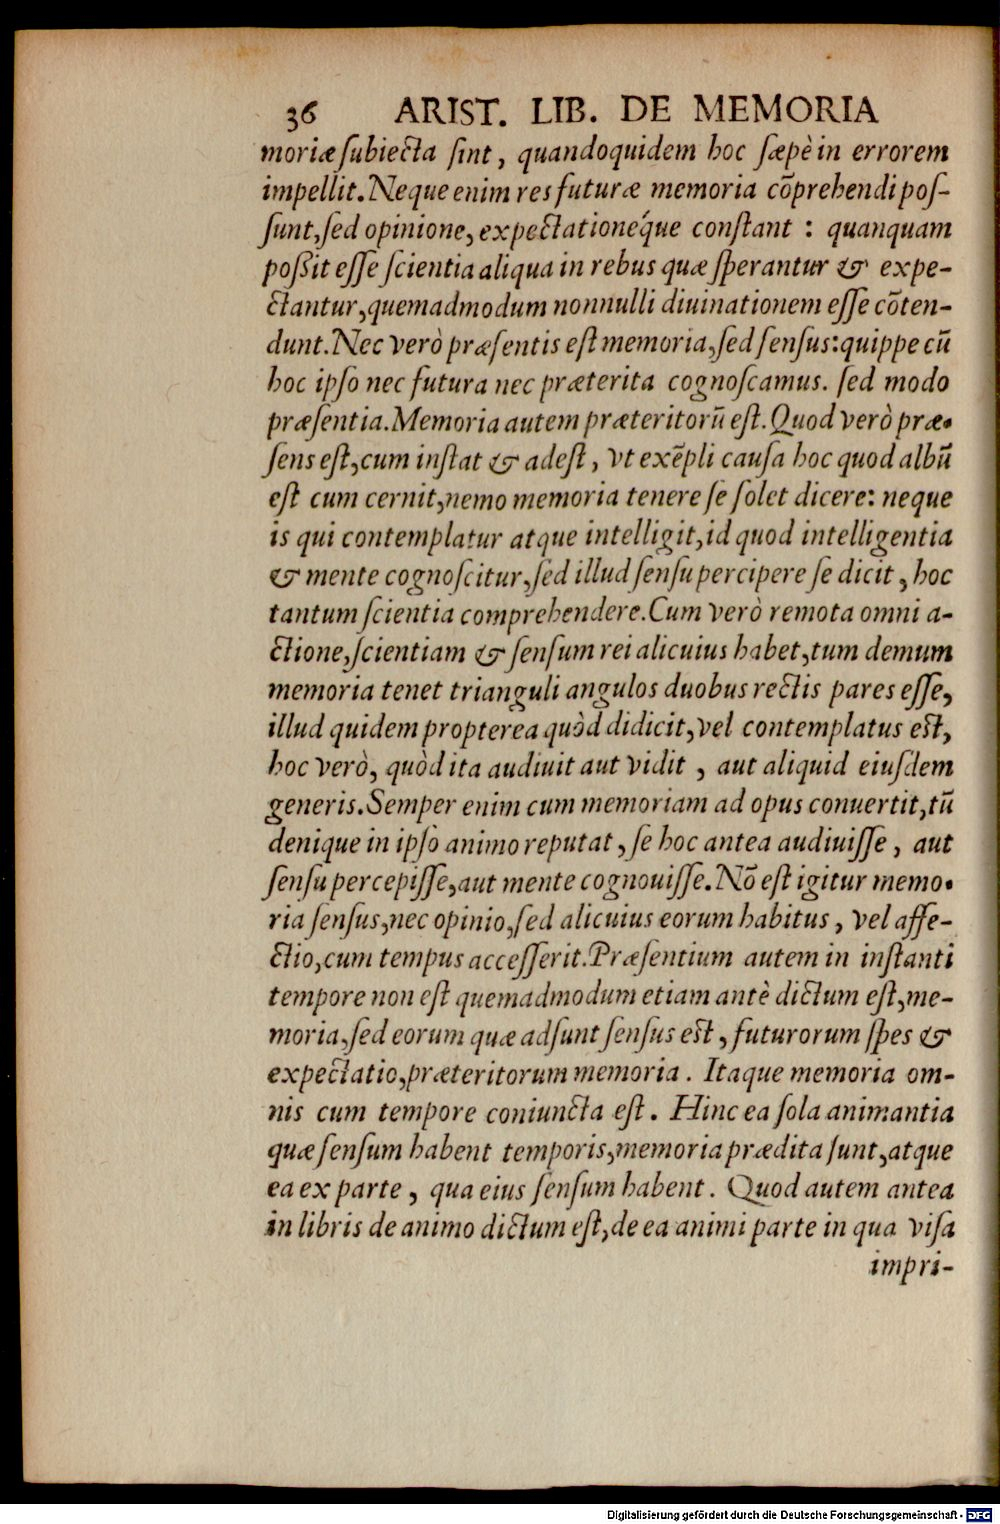 36 ARIST. LIB. DE MEMORIA
moriæ ſubiecta ſint, quandoquidem hoc ſæpè in errorem
impellit. Neque enim res futuræ memoria cōprehendi poſ-
ſunt, ſed opinione, expectationéque conſtant : quanquam
poßit eſſe ſcientia aliqua in rebus quæ ſperantur & expe-
ctantur, quemadmodum nonnulli diuinationem eſſe cōten-
dunt. Nec verò præſentis eſt memoria, ſed ſenſus: quippe cū
hoc ipſo nec futura nec præterita cognoſcamus. ſed modo
præſentia. Memoria autem præteritorū eſt. Quod verò præ-
ſens eſt, cum inſtat & adeſt, vt exēpli cauſa hoc quod albū
eſt cum cernit, nemo memoria tenere ſe ſolet dicere: neque
is qui contemplatur atque intelligit, id quod intelligentia
& mente cognoſcitur, ſed illud ſenſu percipere ſe dicit, hoc
tantum ſcientia comprehendere. Cum verò remota omni a-
ctione, ſcientiam & ſenſum rei alicuius habet, tum demum
memoria tenet trianguli angulos duobus rectis pares eſſe,
illud quidem propterea quòd didicit, vel contemplatus eſt,
hoc verò, quòd ita audiuit aut vidit, aut aliquid eiuſdem
generis. Semper enim cum memoriam ad opus conuertit, tū
denique in ipſo animo reputat, ſe hoc antea audiuiſſe, aut
ſenſu percepiſſe, aut mente cognouiſſe. Nō eſt igitur memo-
ria ſenſus, nec opinio, ſed alicuius eorum habitus, vel affe-
ctio, cum tempus acceſſerit. Præſentium autem in inſtanti
tempore non eſt quemadmodum etiam antè dictum eſt, me-
moria, ſed eorum quæ adſunt ſenſus eſt, futurorum ſpes &
expectatio, præteritorum memoria. Itaque memoria om-
nis cum tempore coniuncta eſt. Hinc ea ſola animantia
quæ ſenſum habent temporis, memoria prædita ſunt, atque
ea ex parte, qua eius ſenſum habent. Quod autem antea
in libris de animo dictum eſt, de ea animi parte in qua viſa
impri-
Digitalisierung gefördert durch die Deutsche Forschungsgemeinschaft - DFG